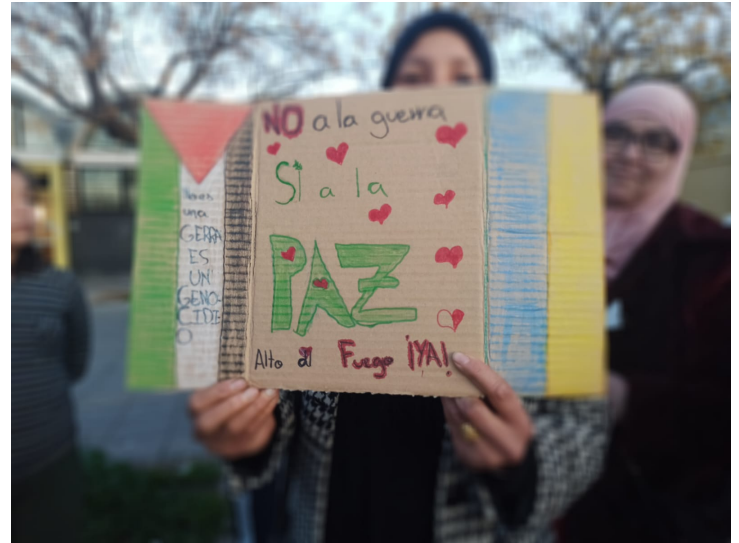 NO a la guerra
Sí a la
PAZ
Alto al Fuego ¡YA!
No es
una
GERRA
ES
UN
GENO-
CIDI-
O